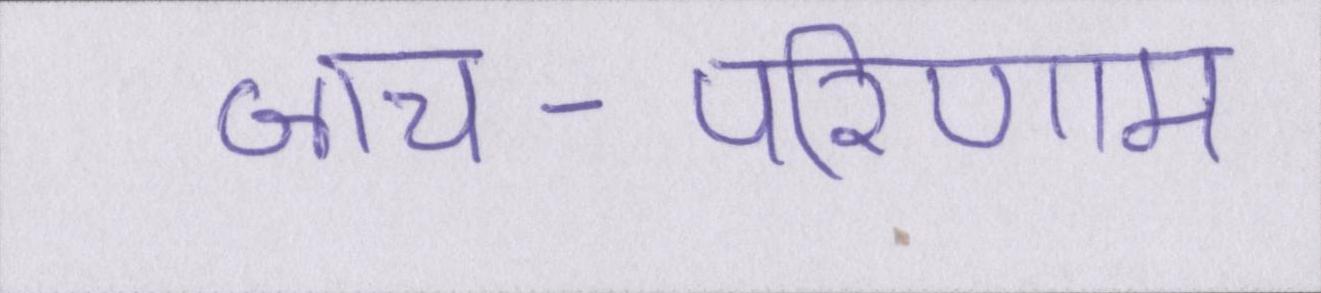 जाच-परिणाम